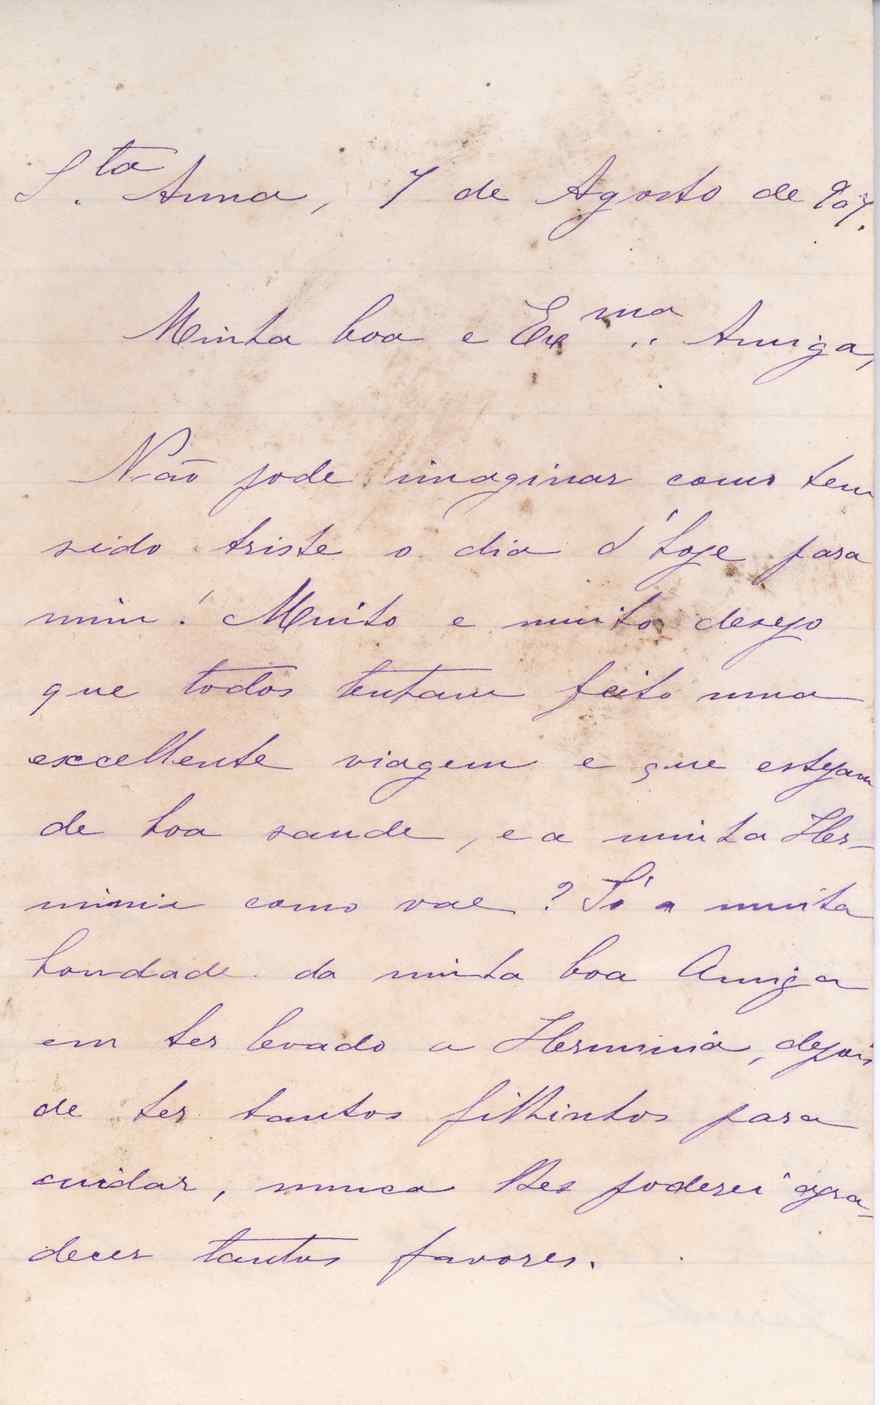 S.ta Anna, 7 de Agosto de 907.
Minha boa e Exma.. Amiga,
Não pode imaginar como tem
sido triste o dia d'hoje para
mim! Muito e muito desejo
que todos tenham feito uma
excellente viagem e que estejam
de boa saude, e a minha Her-
minia como vae? Só a muita
bondade da minha boa Amiga
em ter levado a Herminia, depois
de ter tantos filhinhos para
cuidar, nunca lhes poderei agra-
decer tantos favores.